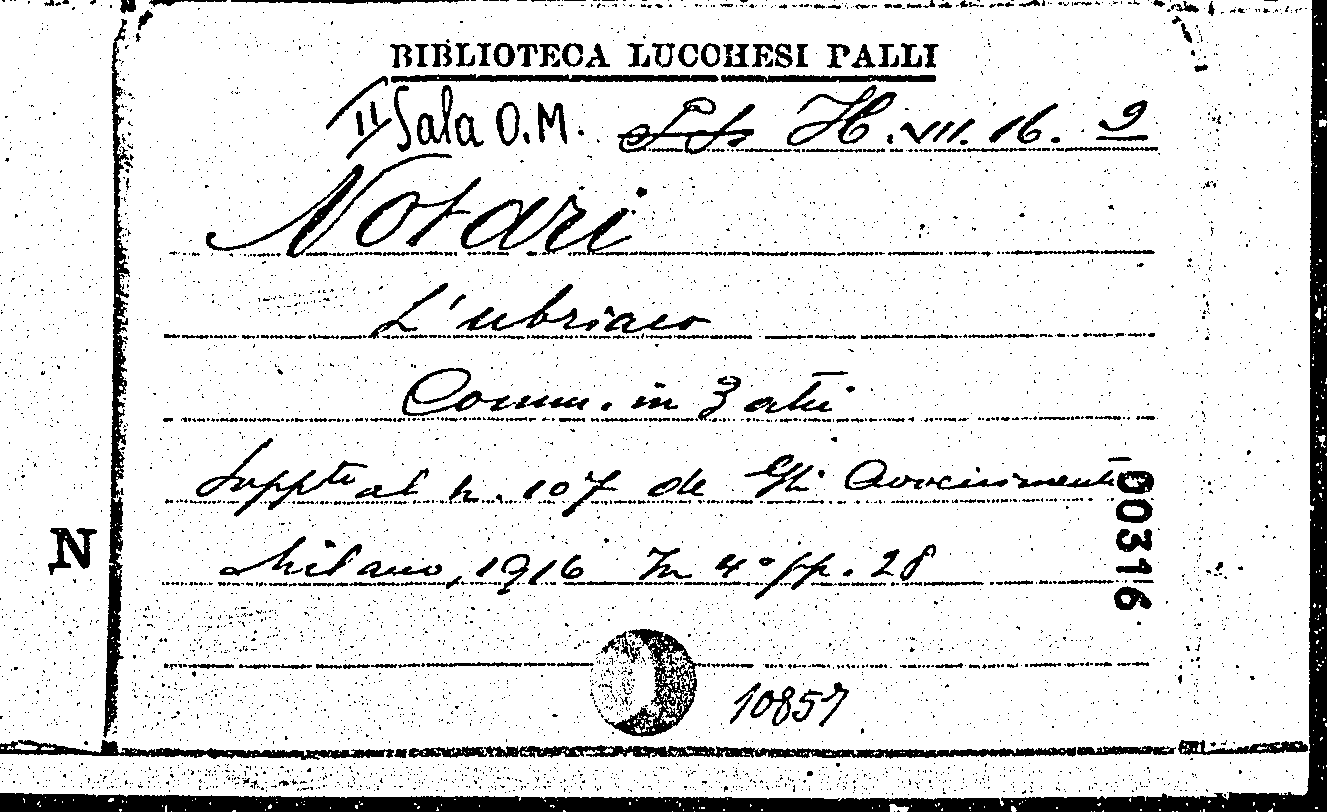 BIBLIOTECA LUCCHESI PALLI
II Sala O.M. H. VII. 16. 9
Notari
L'ubriaco
Comm. in 3 atti
Suppto al n. 107 de Gli Avvenimenti
Milano, 1916 In 4° pp. 28
N
00316
10857